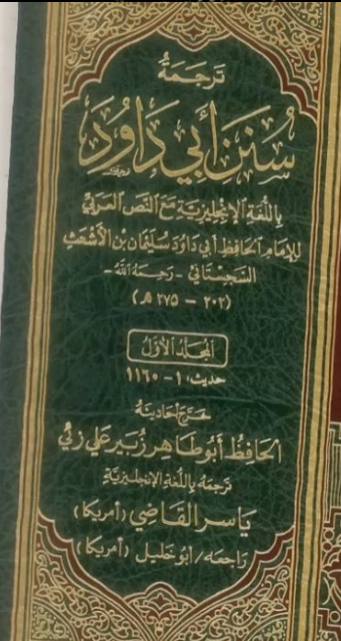 تَرجَمَةُ
سُنَنِ أَبِي دَاوُدَ
بِاللُّغَةِ الإِنْجِلِيزِيَّةِ مَعَ النَّصِ العَرَبِيِّ
لِلإِمَامِ الحَافِظِ أَبِي دَاوُدَ سُلَيْمَان بْنِ الأَشْعَثِ
السِّجِسْتَانِي - رَحِمَهُ اللَّهُ -
(٢٠٢ - ٢٧٥ هـ)
المُجَلَّدُ الأَوَّلُ
حديث: ١ - ١١٦٠
خَرَّجَ أَحَادِيثَهُ
الحَافِظُ أَبُو طَاهِر زُبَير عَلِي زَئِي
تَرجَمَهُ بِاللُّغَةِ الإِنجِلِيزِيَّةِ
يَاسِر القَاضِي (أمريكا)
رَاجَعَهُ / أبُو خَلِيل (أمريكا)